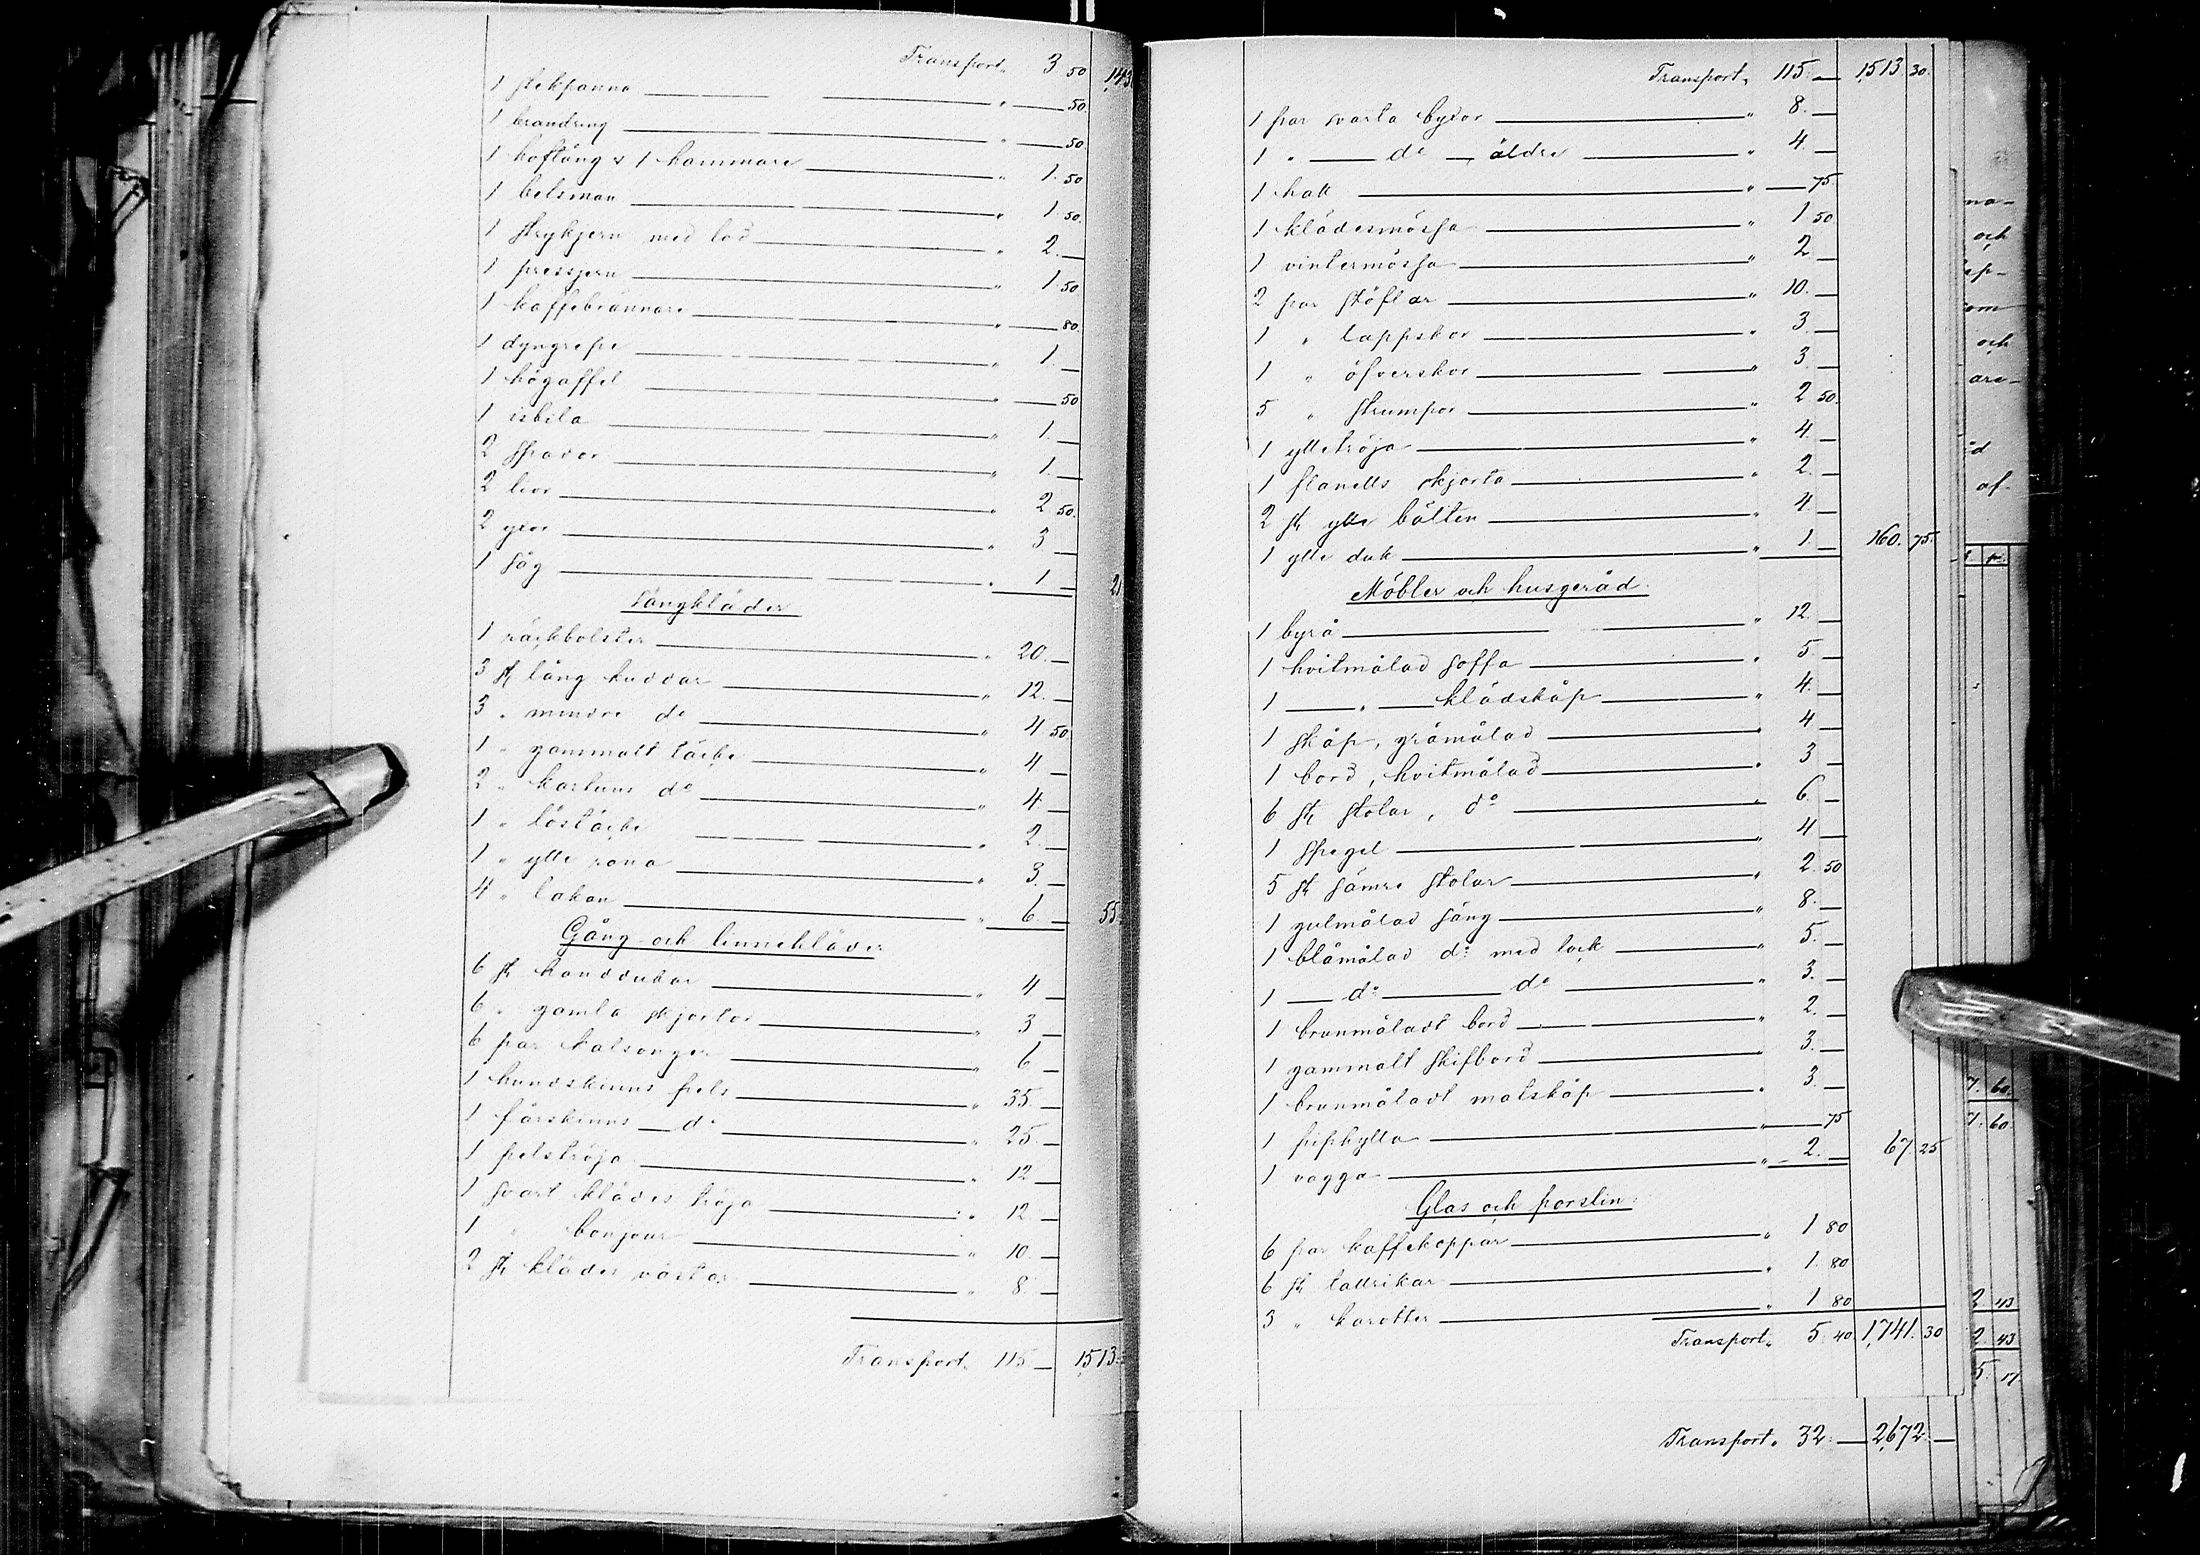 Transport„ 3 50 143
1 stekpanna „ 50
1 brandring „ 50
1 hoftång & 1 hammare „ 1. 50
1 betsman „ 1 50.
1 strykjern med lod „ 2.
1 pressjern „ 1 50
1 kaffebrännare „ 80.
1 dyngrepe „ 1.
1 högaffel „ 50
1 isbila „ 1.
2 spador „ 1.
2 lior „ 2 50.
2 yxor „ 3
1 såg „ 1 21
Sängkläder
1 räckbolster „ 20.
3 st lång kuddar „ 12.
3 „ mindre do „ 4 50
1 „ gammalt täcke „ 4
2 „ kartuns do „ 4
1 „ löstäcke „ 2.
1 „ ylle rana „ 3.
4 „ lakan „ 6. 55.
Gång och linnekläder
6 st handdukar „ 4
6 „ gamla skjortor „ 3
6 par kalsonger „ 6
1 hundskinns pels „ 35.
1 fårskinns do „ 25.
1 pelströja „ 12
1 svart klädes tröja „ 12
1 „ bonjour „ 10.
2 st klädes västar „ 8
Transport„ 115 1513.
Transport„ 115. 1513 30.
1 par svarta byxor „ 8.
1 „ do äldre „ 4
1 hatt „ 75.
1 klädesmössa „ 1 50
1 vintermössa „ 2
2 par stöflar „ 10.
1 „ lappskor „ 3.
1 „ öfverskor „ 3.
5 „ strumpor „ 2 50.
1 ylletröja „ 4.
1 flanells skjorta „ 2.
2 st ylle bälten „ 4.
1 ylle duk „ 1. 160. 75.
Möbler och husgeråd.
1 byrå „ 12.
1 hvitmålad soffa „ 5
1 „ klädskåp „ 4.
1 skåp, gråmålad „ 4
1 bord, hvitmålad „ 3
6 st stolar, do „ 6.
1 spegel „ 4
5 st sämre stolar „ 2. 50
1 gulmålad säng „ 8.
1 blåmålad do med lock „ 5.
1 do do „ 3.
1 brunmåladt bord „ 2.
1 gammalt skifbord „ 3.
1 brunmåladt matskåp „ 3.
1 piphylla „ 75
1 vagga „ 2. 67. 25
Glas och porslin.
6 par kaffekoppar „ 1 80
6 st tallrikar „ 1. 80
3 „ karotter „ 1 80
Transport„ 5. 40 1,741. 30
Transport„ 32. 2,672.
na-
och
om
och
are-
af.
7. 60.
7. 60.
2 43
2. 43
5. 17.